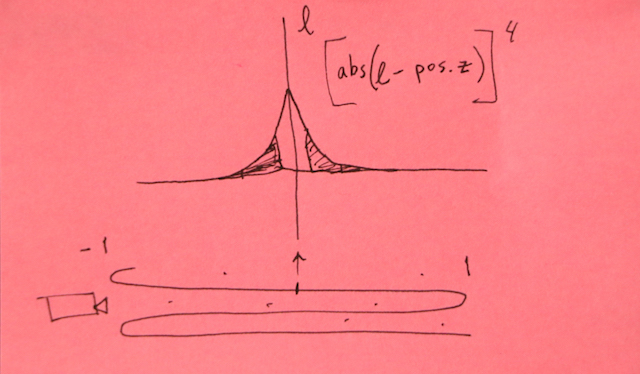 l
4
[abs(l - pos.z)]
-1
1